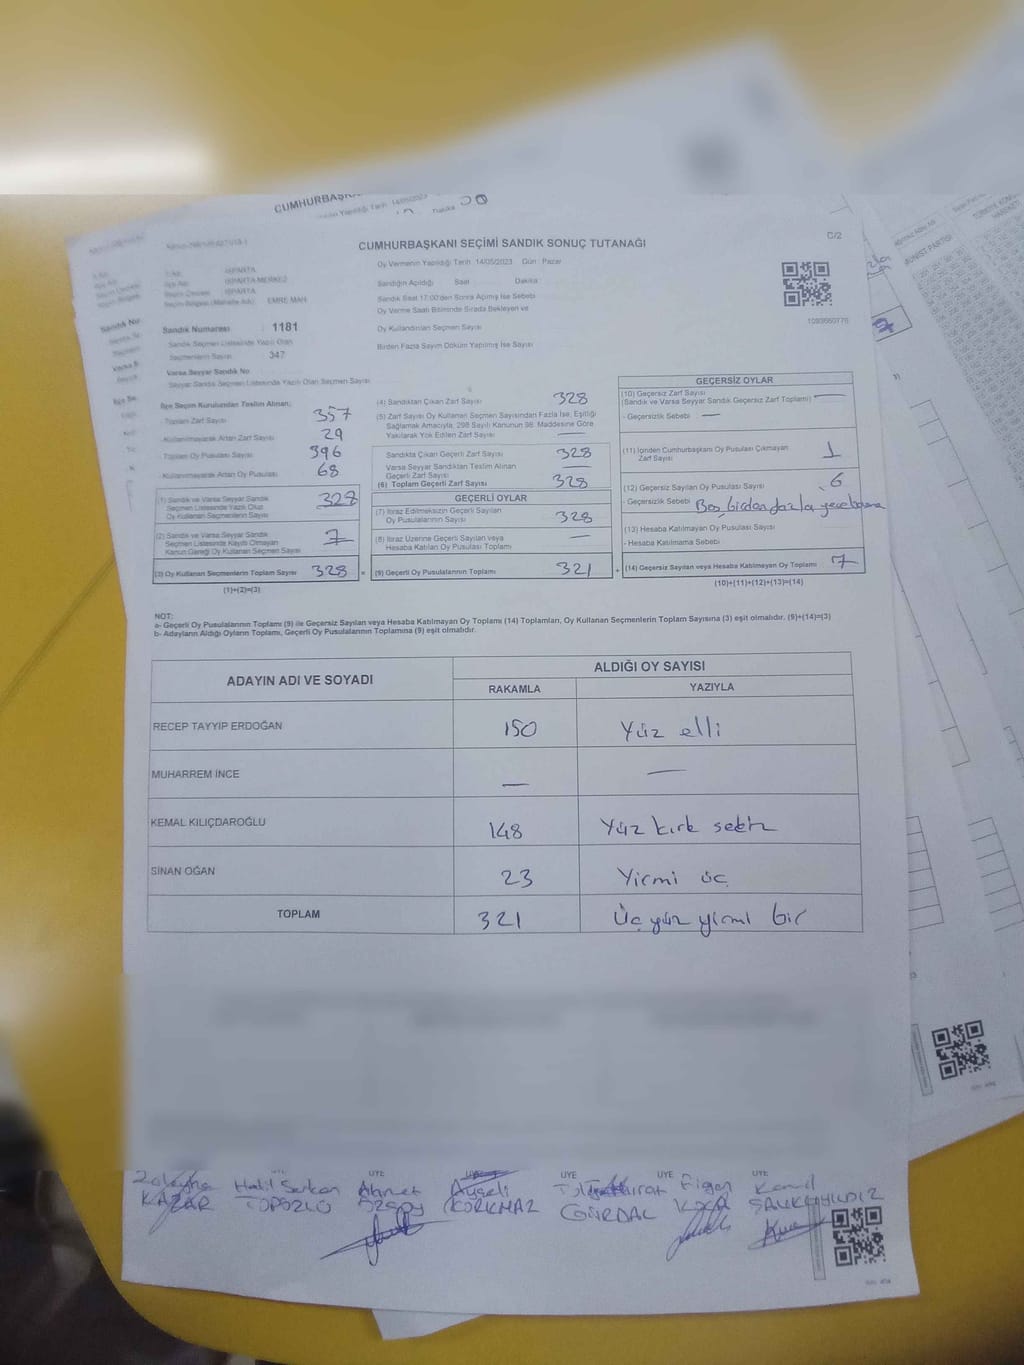 CUMHURBAŞKANI SEÇİMİ SANDIK SONUÇ TUTANAĞI
C/2
İli Adı ISPARTA
İlçe Adı ISPARTA MERKEZ
Seçim Çevresi ISPARTA
Seçim Bölgesi (Mahalle Adı) EMRE MAH
Sandık Numarası 1181
Sandık Seçmen Listesinde Yazılı Olan
Seçmenlerin Sayısı 347
Varsa Seyyar Sandık No
Seyyar Sandık Seçmen Listesinde Yazılı Olan Seçmen Sayısı
Oy Vermenin Yapıldığı Tarih 14/05/2023 Gün Pazar
Sandığın Açıldığı Saat Dakika
Sandık Saat 17:00'den Sonra Açılmış İse Sebebi
Oy Verme Saati Bitiminde Sırada Bekleyen ve
Oy Kullandırılan Seçmen Sayısı
Birden Fazla Sayım Döküm Yapılmış İse Sayısı
1093660776
İlçe Seçim Kurulundan Teslim Alınan;
Toplam Zarf Sayısı 357
-Kullanılmayarak Artan Zarf Sayısı 29
-Toplam Oy Pusulası Sayısı 396
-Kullanılmayarak Artan Oy Pusulası 68
(1) Sandık ve Varsa Seyyar Sandık
Seçmen Listesinde Yazılı Olup
Oy Kullanan Seçmenlerin Sayısı 328
(2) Sandık ve Varsa Seyyar Sandık
Seçmen Listesinde Kayıtlı Olmayan
Kanun Gereği Oy Kullanan Seçmen Sayısı
(3) Oy Kullanan Seçmenlerin Toplam Sayısı 328 =
(1)+(2)=(3)
(4) Sandıktan Çıkan Zarf Sayısı 328
(5) Zarf Sayısı Oy Kullanan Seçmen Sayısından Fazla İse, Eşitliği
Sağlamak Amacıyla, 298 Sayılı Kanunun 98. Maddesine Göre
Yakılarak Yok Edilen Zarf Sayısı —
Sandıkta Çıkan Geçerli Zarf Sayısı 328
Varsa Seyyar Sandıktan Teslim Alınan
Geçerli Zarf Sayısı —
(6) Toplam Geçerli Zarf Sayısı 328
GEÇERLİ OYLAR
(7) İtiraz Edilmeksizin Geçerli Sayılan
Oy Pusulalarının Sayısı 328
(8) İtiraz Üzerine Geçerli Sayılan veya
Hesaba Katılan Oy Pusulası Toplamı —
(9) Geçerli Oy Pusulalarının Toplamı 321 +
GEÇERSİZ OYLAR
(10) Geçersiz Zarf Sayısı
(Sandık ve Varsa Seyyar Sandık Geçersiz Zarf Toplamı) —
- Geçersizlik Sebebi : —
(11) İçinden Cumhurbaşkanı Oy Pusulası Çıkmayan
Zarf Sayısı 1
(12) Geçersiz Sayılan Oy Pusulası Sayısı 6
- Geçersizlik Sebebi Boş, birden fazla
(13) Hesaba Katılmayan Oy Pusulası Sayısı
- Hesaba Katılmama Sebebi
(14) Geçersiz Sayılan veya Hesaba Katılmayan Oy Toplamı 7
(10)+(11)+(12)+(13)=(14)
NOT:
a- Geçerli Oy Pusulalarının Toplamı (9) ile Geçersiz Sayılan veya Hesaba Katılmayan Oy Toplamı (14) Toplamları, Oy Kullanan Seçmenlerin Toplam Sayısına (3) eşit olmalıdır. (9)+(14)=(3)
b- Adayların Aldığı Oyların Toplamı, Geçerli Oy Pusulalarının Toplamına (9) eşit olmalıdır.
ADAYIN ADI VE SOYADI ALDIĞI OY SAYISI
RAKAMLA YAZIYLA
RECEP TAYYİP ERDOĞAN 150 Yüz elli
MUHARREM İNCE — —
KEMAL KILIÇDAROĞLU 148 Yüz kırk sekiz
SİNAN OĞAN 23 Yirmi üç
TOPLAM 321 Üç yüz yirmi bir
ÜYE ÜYE ÜYE ÜYE
Halil Serkan Ahmet Ayseli Kamil
KORKMAZ GÜRDAL KOCA